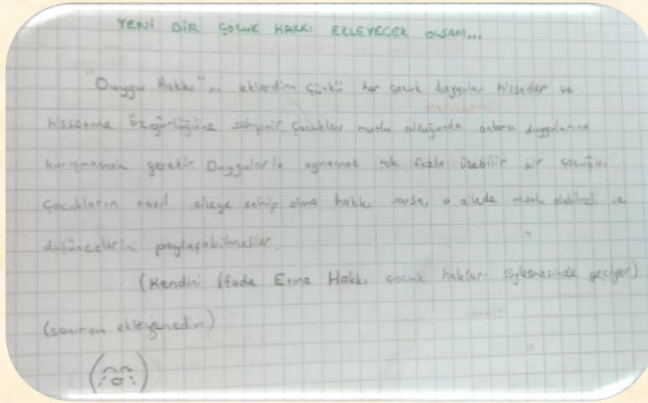 YENİ BİR ÇOCUK HAKKI EKLEYECEK OLSAM...
"Duygu Hakkı"nı eklerdim çünkü her çocuk duygular hisseder ve
hissetme özgürlüğüne sahiptir çocuklar mutlu olduğunda onların duygularına
karışmamak gerekir Duygularla oynamak çok fazla üzebilir bir çocuğu.
Çocukların nasıl aileye sahip olma hakkı varsa, o ailede mutlu olabilmeli ve
düşüncelerin paylaşabilmeliler.
(Kendini İfade Etme Hakkı çocuk hakları sözleşmesinde geçiyor)
(sanırım ekleyemedim)